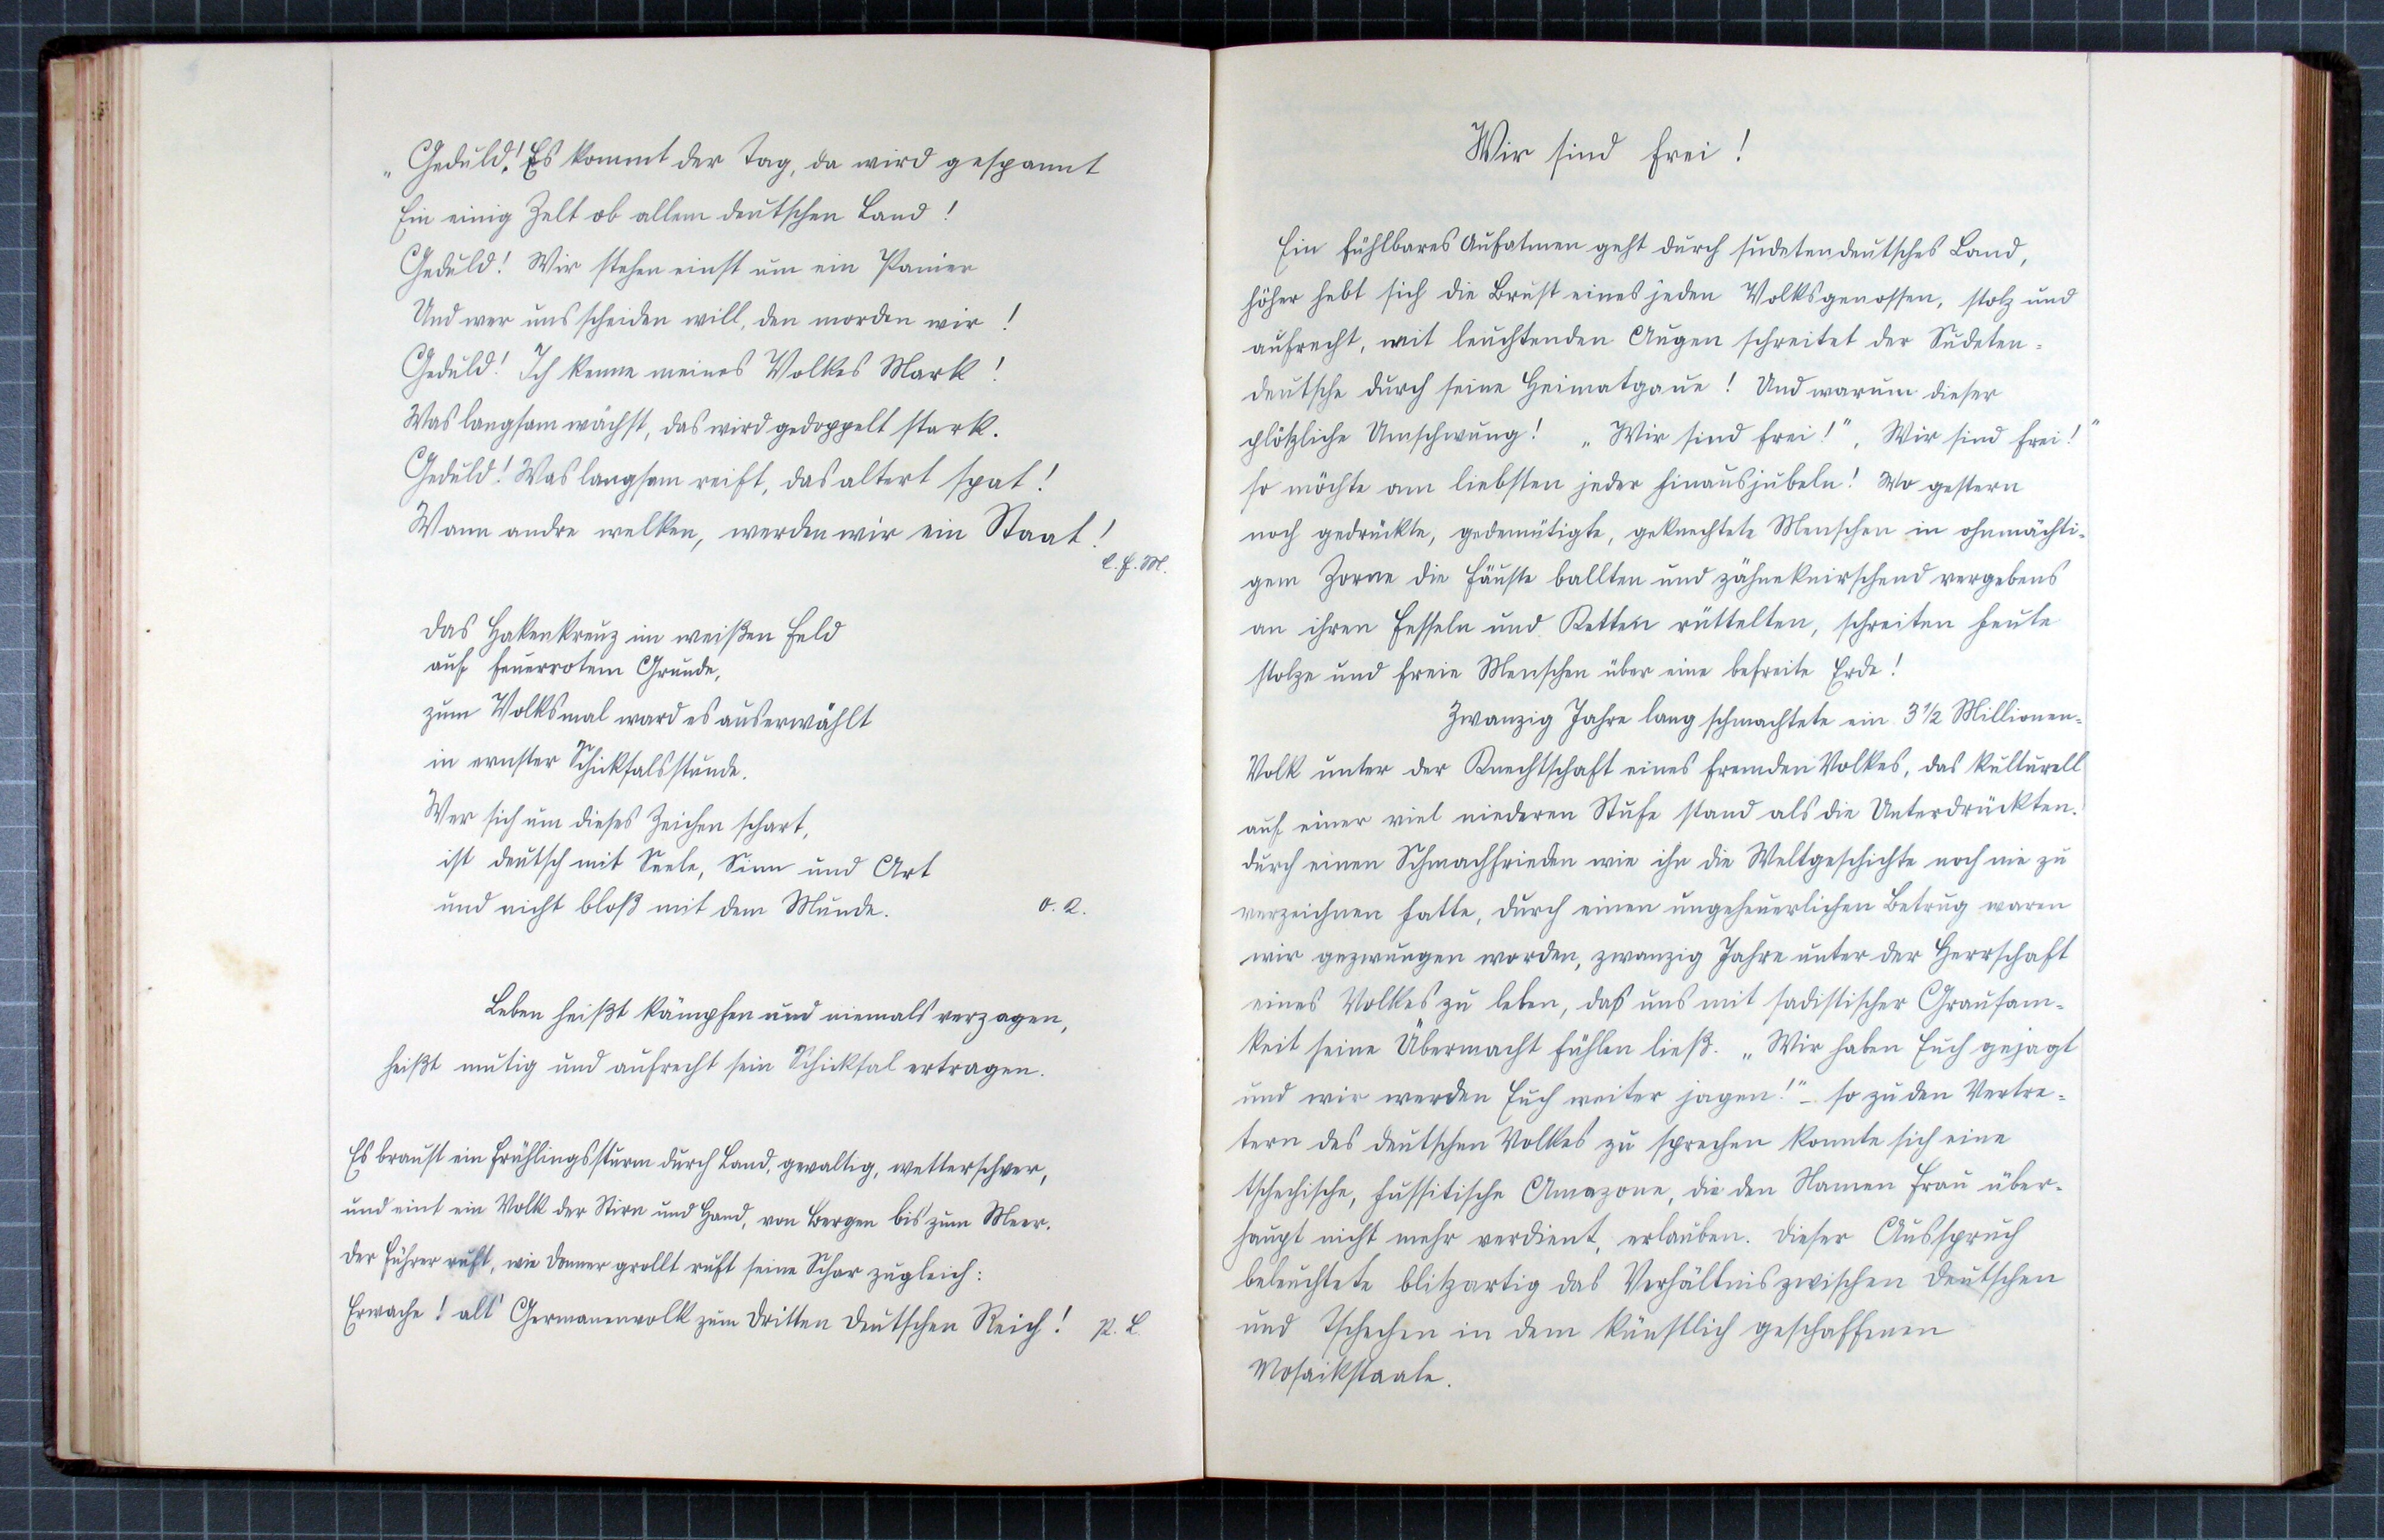 „Geduld! Es kommt der Tag, da wird gespannt
Ein einig Zelt ob allem deutschen Land!
Geduld! Wir stehen einst um ein Panier
Und wer uns scheiden will, den morden wir!
Geduld! Ich kenne meines Volkes Mark!
Was langsam wächst, das wird gedoppelt stark.
Geduld! Was langsam reift, das altert spat!
Wann andre welken, werden wir ein Staat!
C. F. M.
Das Hakenkreuz im weißen Feld
auf feuerrotem Grunde,
zum Volksmal ward es auserwählt
in ernster Schicksalsstunde.
Wer sich um dieses Zeichen schart,
ist deutsch mit Seele, Sinn und Art
und nicht bloß mit dem Munde.
Leben heißt kämpfen und niemals verzagen,
heißt mutig und aufrecht sein Schicksal ertragen.
Es braust ein Frühlingssturm durch Land, gewaltig, wetterschwer,
und eint ein Volk der Stirn und Hand, von Bergen bis zum Meer.
Der Führer ruft, wie Donner grollt ruft seine Schar zugleich:
Erwache! alt' Germanenvolk zum Dritten Deutschen Reich! P. L.
Wir sind frei!
Ein fühlbares Aufatmen geht durch sudetendeutsches Land,
höher hebt sich die Brust eines jeden Volksgenossen, stolz und
aufrecht, mit leuchtenden Augen schreitet der Sudeten=
deutsche durch seine Heimatgaue! Und warum dieser
plötzliche Umschwung! „Wir sind frei!", Wir sind frei!"
so möchte am liebsten jeder hinausjubeln! Wo gestern
noch gedrückte, gedemütigte, geknechtete Menschen in ohnmächti=
gem Zorne die Fäuste ballten und zähneknirschend vergebens
an ihren Fesseln und Ketten rüttelten, schreiten heute
stolze und freie Menschen über eine befreite Erde!
Zwanzig Jahre lang schmachtete ein 3½ Millionen=
Volk unter der Knechtschaft eines fremden Volkes, das kulturell
auf einer viel niederen Stufe stand als die Unterdrückten.
Durch einen Schmachfrieden wie ihn die Weltgeschichte noch nie zu
verzeichnen hatte, durch einen ungeheuerlichen Betrug waren
wir gezwungen worden, zwanzig Jahre unter der Herrschaft
eines Volkes zu leben, das uns mit sadistischer Grausam=
keit seine Übermacht fühlen ließ. „Wir haben Euch gejagt
und wir werden Euch weiter jagen!" – so zu den Vertre=
tern des deutschen Volkes zu sprechen konnte sich eine
tschechische, hussitische Amazone, die den Namen Frau über=
haupt nicht mehr verdient, erlauben. Dieser Ausspruch
beleuchtete blitzartig das Verhältnis zwischen Deutschen
und Tschechen in dem künstlich geschaffenen
Mosaikstaate.